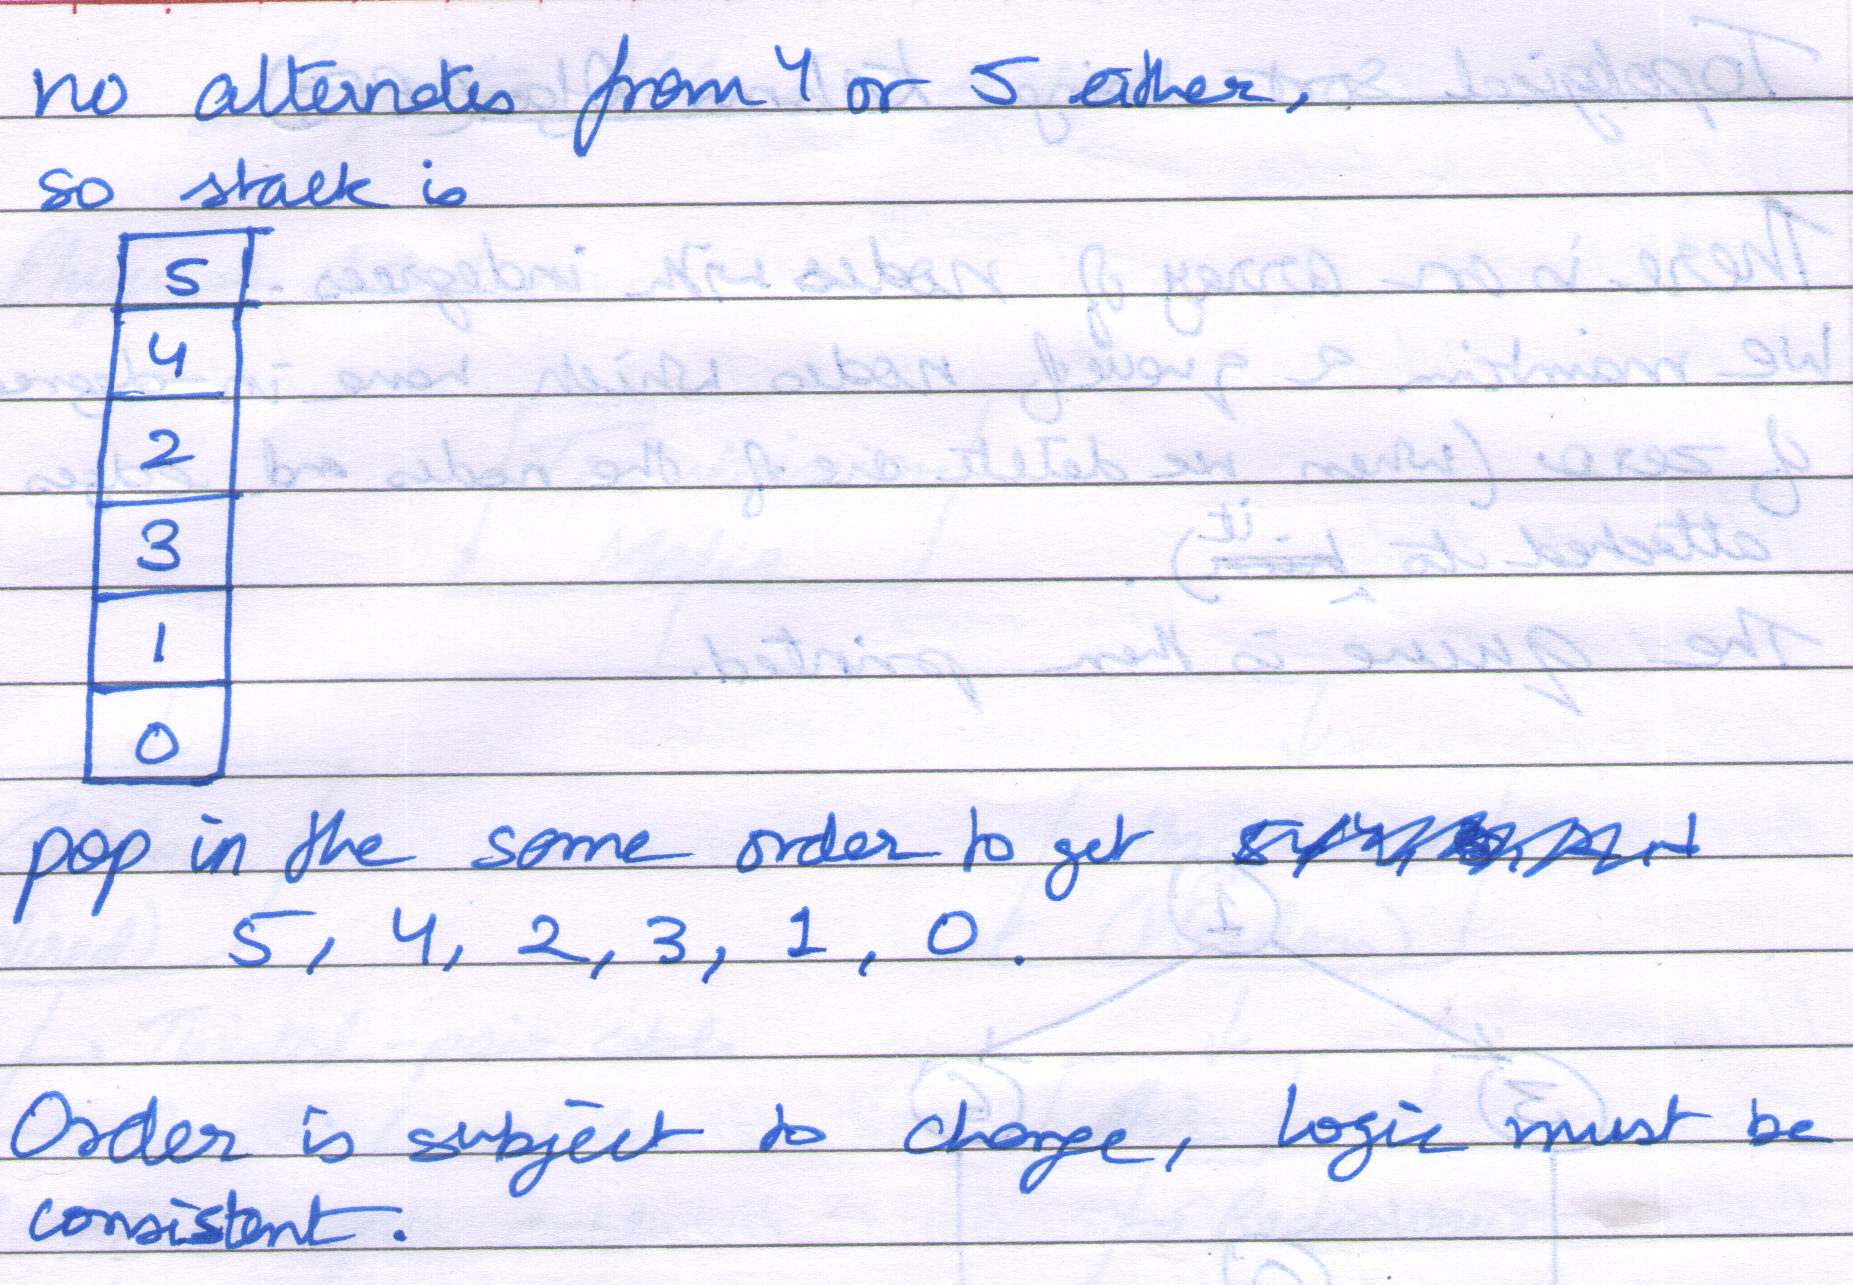 no alternates from 4 or 5 either,
so stack is
5
4
2
3
1
0
pop in the same order to get
5, 4, 2, 3, 1, 0.
Order is subject to change, Logic must be
consistent.